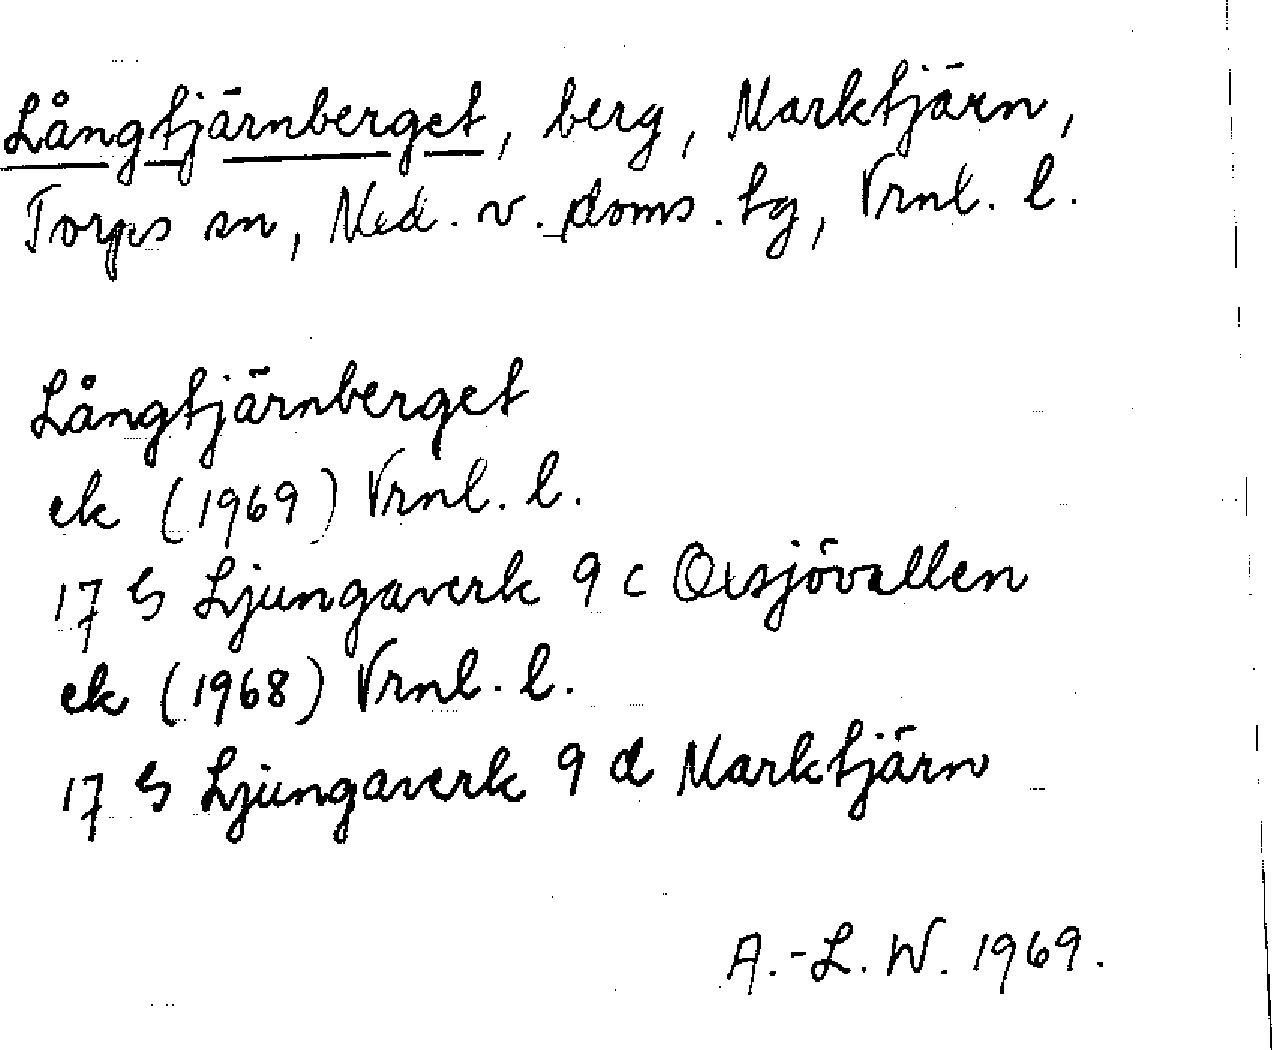 Långtjärnberget, berg, Marktjärn,
Torps sn, Med. v. doms. tg, Vrnl. l.
Långtjärnberget
ek (1969) Vrnl. l.
17 G Ljungaverk 9 c Oxsjövallen
ek (1968) Vrnl. l.
17 G Ljungaverk 9 d Marktjärn
A.-L. W. 1969.